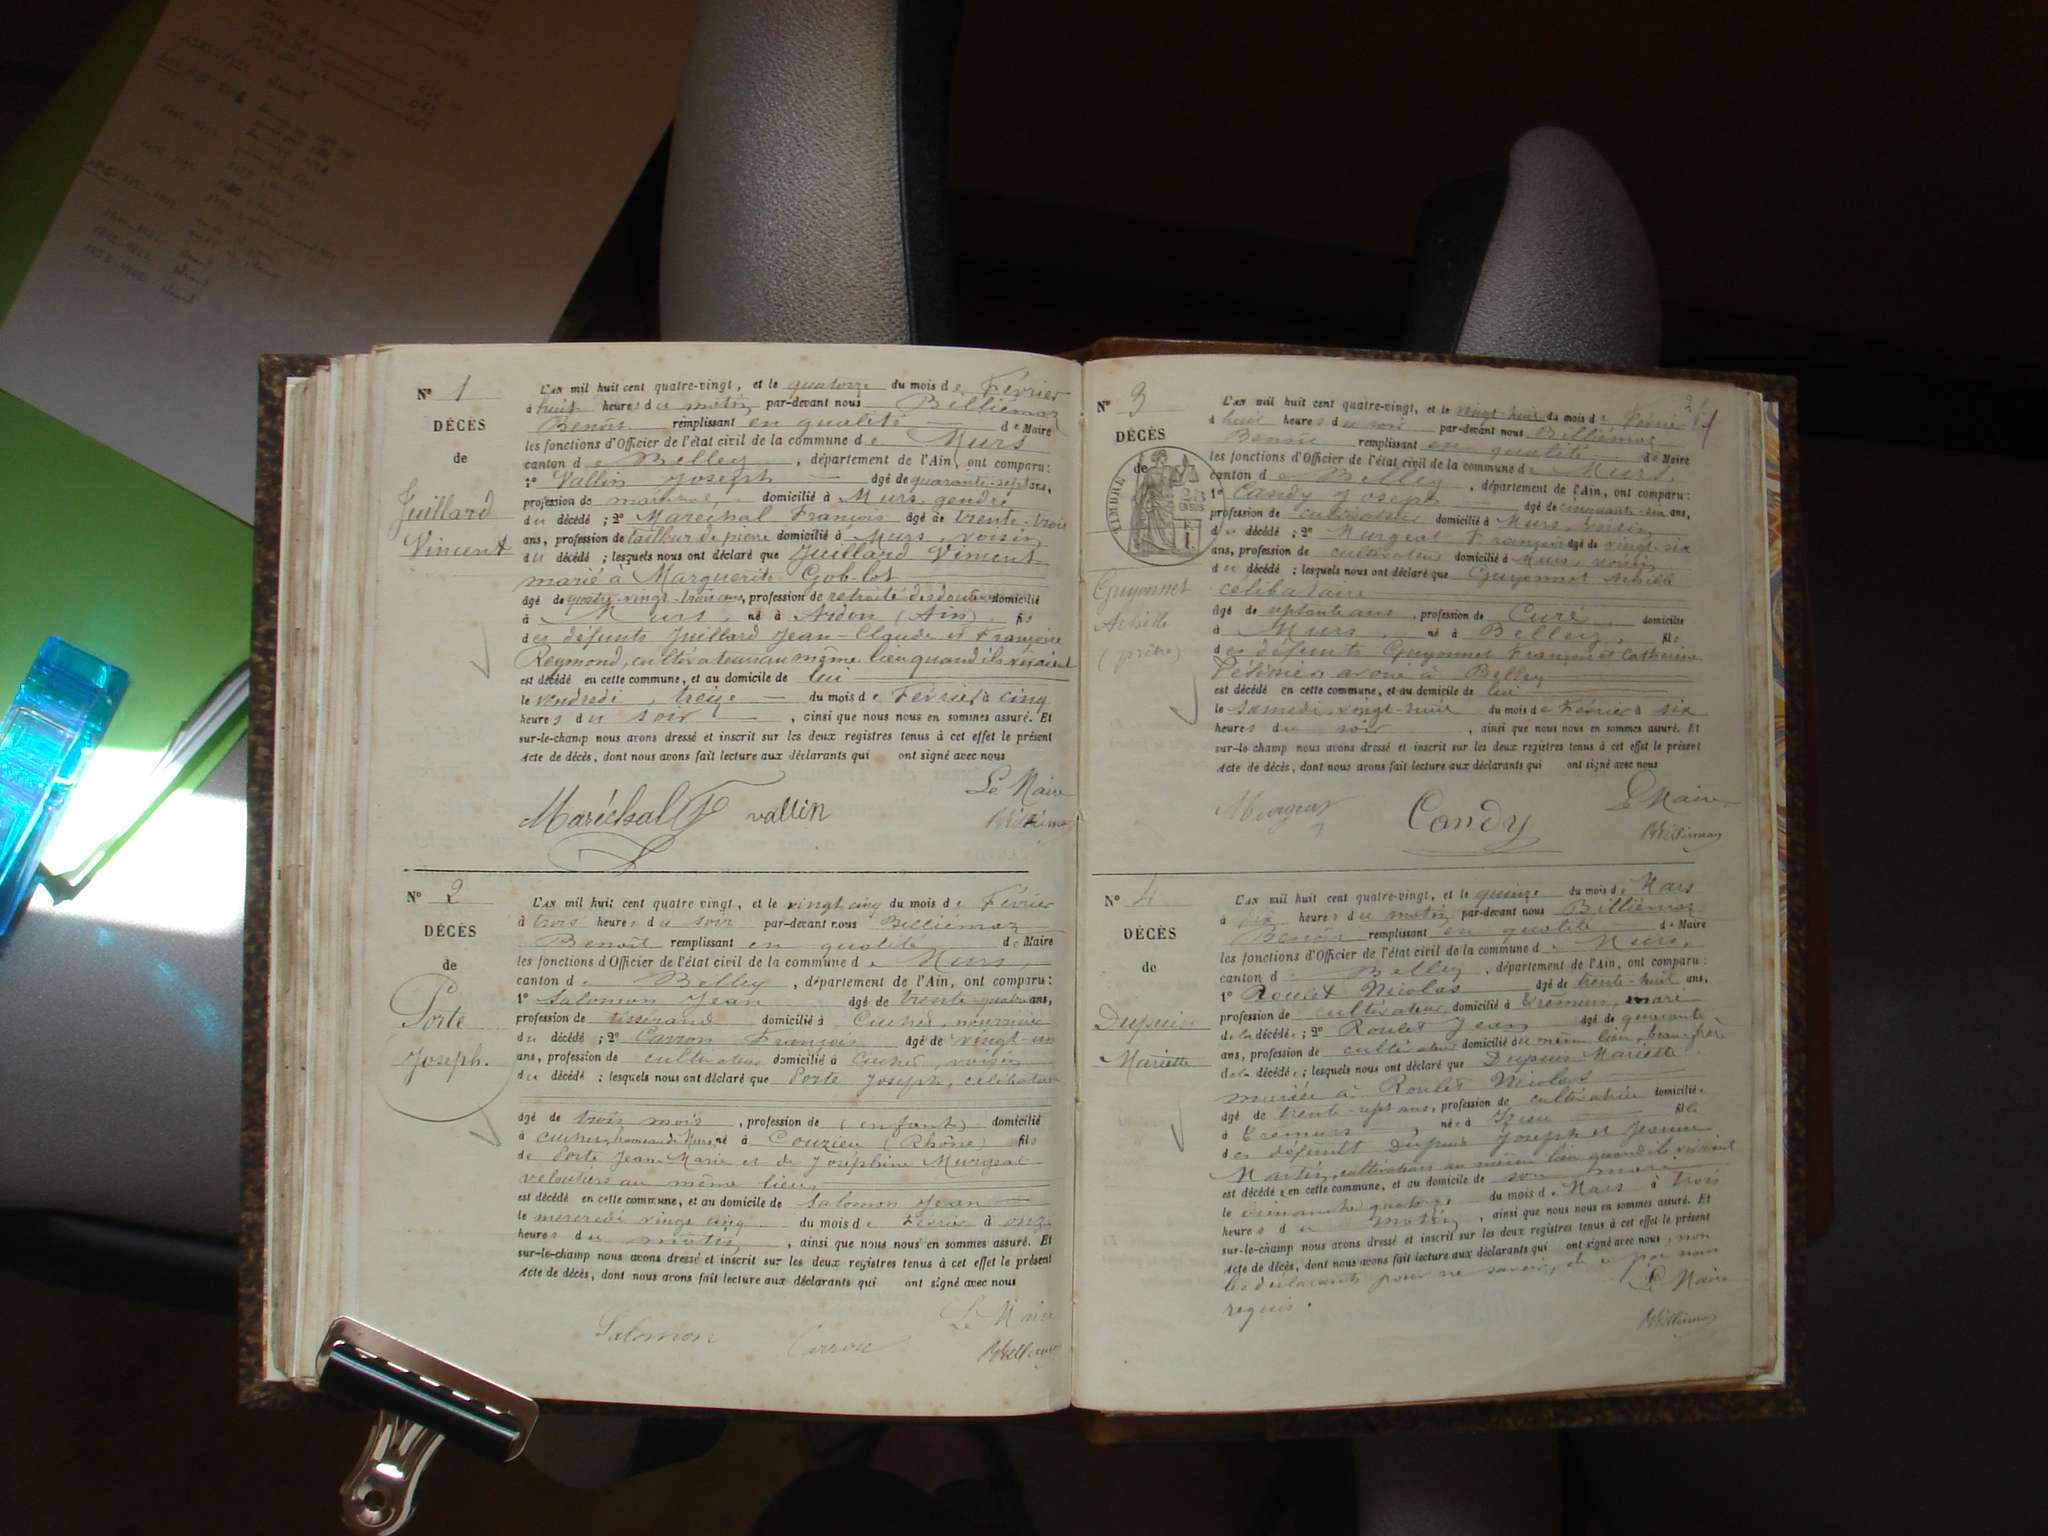 N° 1
DÉCÈS
de
Juillard
Vincent
L'AN mil huit cent quatre-vingt, et le quatorze du mois de Février
à huit heures du matin par-devant nous Billiémaz
Benoît remplissant en qualité de Maire
les fonctions d'Officier de l'état civil de la commune de Murs
canton de Belley, département de l'Ain, ont comparu:
1° Vallin Joseph âgé de quarante-sept ans,
profession de domicilié à Murs, gendre
du décédé; 2° Maréchal François âgé de trente-trois
ans, profession de tailleur de pierre domicilié à Murs, voisin
du décédé; lesquels nous ont déclaré que Juillard Vincent
marié à Marguerite Gob-lot
âgé de quatre-vingt-trois ans, profession de retraité des douanes domicilié
à Murs, né à Ardon (Ain), fils
des défunts Juillard Jean-Claude et Françoise
Reymond, cultivateurs au même lieu quand ils vivaient
est décédé en cette commune, et au domicile de lui
le vendredi, treize du mois de Février à cinq
heures du soir, ainsi que nous nous en sommes assuré. Et
sur-le-champ nous avons dressé et inscrit sur les deux registres tenus à cet effet le présent
Acte de décès, dont nous avons fait lecture aux déclarants qui ont signé avec nous
Le Maire
Maréchal F vallin Billiémaz
N° 2
DÉCÈS
de
Porte
Joseph.
L'AN mil huit cent quatre vingt, et le vingt cinq du mois de Février
à trois heures du soir par-devant nous Billiémaz
Benoît remplissant en qualité de Maire
les fonctions d'Officier de l'état civil de la commune de Murs,
canton de Belley, département de l'Ain, ont comparu:
1° Salomon Jean âgé de trente-quatre ans,
profession de tisserand domicilié à Cuchet, nourricier
du décédé; 2° Carron François âgé de vingt-un
ans, profession de cultivateur domicilié à Cuchet, voisin
du décédé; lesquels nous ont déclaré que Porte Joseph, célibataire
âgé de trois mois, profession de (enfant) domicilié
à Cuchet, hameau de Murs né à Couzieu (Rhône) fils
de Porte Jean-Marie et de Joséphine Murgeat
veloutiers au même lieu,
est décédé en cette commune, et au domicile de Salomon Jean
le mercredi vingt cinq du mois de Février à onze
heures du matin, ainsi que nous nous en sommes assuré. Et
sur-le-champ nous avons dressé et inscrit sur les deux registres tenus à cet effet le présent
Acte de décès, dont nous avons fait lecture aux déclarants qui ont signé avec nous
Le Maire
Salomon Carron Billiémaz
N° 3
DÉCÈS
de
TIMBRE
Guyonnet
Achille
(prêtre)
L'AN mil huit cent quatre-vingt, et le vingt-huit du mois de Février
à huit heures du soir par-devant nous Billiémaz
Benoît remplissant en qualité de Maire
les fonctions d'Officier de l'état civil de la commune de Murs,
canton de Belley, département de l'Ain, ont comparu:
1° Candy Joseph âgé de cinquante-six ans,
profession de cultivateur domicilié à Murs, voisin
du décédé; 2° Murgeat François âgé de vingt-six
ans, profession de cultivateur domicilié à Murs, voisin
du décédé; lesquels nous ont déclaré que Guyonnet Achille
célibataire
âgé de septante ans, profession de Curé, domicilié
à Murs, né à Belley, fils
des défunts Guyonnet François et Catherine
avoué à Belley
est décédé en cette commune, et au domicile de lui
le samedi, vingt-huit du mois de Février à six
heures du soir, ainsi que nous nous en sommes assuré. Et
sur-le-champ nous avons dressé et inscrit sur les deux registres tenus à cet effet le présent
Acte de décès, dont nous avons fait lecture aux déclarants qui ont signé avec nous
Le Maire
Murgeat Candy Billiémaz
N° 4
DÉCÈS
de
Dupuis
Mariette
L'AN mil huit cent quatre-vingt, et le quinze du mois de Mars
à dix heures du matin par-devant nous Billiémaz
Benoît remplissant en qualité de Maire
les fonctions d'Officier de l'état civil de la commune de Murs,
canton de Belley, département de l'Ain, ont comparu:
1° Roulet Nicolas âgé de trente-huit ans,
profession de cultivateur domicilié à Crémurs, mari
de la décédée; 2° Roulet Jean âgé de quarante
ans, profession de cultivateur domicilié au même lieu, beau-frère
de la décédée; lesquels nous ont déclaré que Dupuis Mariette
mariée à Roulet Nicolas
âgé de trente-sept ans, profession de cultivatrice domiciliée
à Crémurs, née à Izieu fille
des défunts Dupuis Joseph et Jeanne
Martin, cultivateurs au même lieu quand ils vivaient
est décédée en cette commune, et au domicile de son mari
le dimanche quatorze du mois de Mars à trois
heures du matin, ainsi que nous nous en sommes assuré. Et
sur-le-champ nous avons dressé et inscrit sur les deux registres tenus à cet effet le présent
Acte de décès, dont nous avons fait lecture aux déclarants qui ont signé avec nous, non
les déclarants pour ne savoir, de ce par nous
requis. Le Maire
Billiémaz